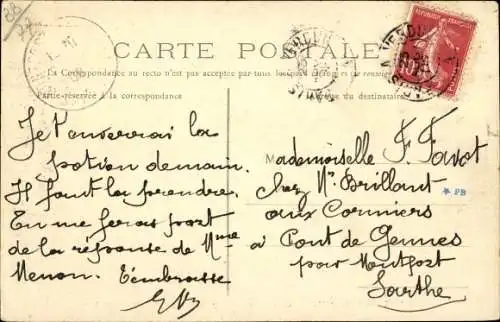 CARTE POSTALE
La Correspondance au recto n'est pas acceptée par tous les pays étrangers
Partie réservée à la correspondance
Adresse du destinataire
REPUBLIQUE FRANÇAISE
Je t'enverrai la
potion demain.
Il faut la prendre.
Tu me feras part
de la réponse de Mme
Menon. T'embrasse
Mademoiselle F. Favot
chez Mr Brillant
aux Cormiers
à Pont de Gennes
par Montfort
Sarthe
* PB